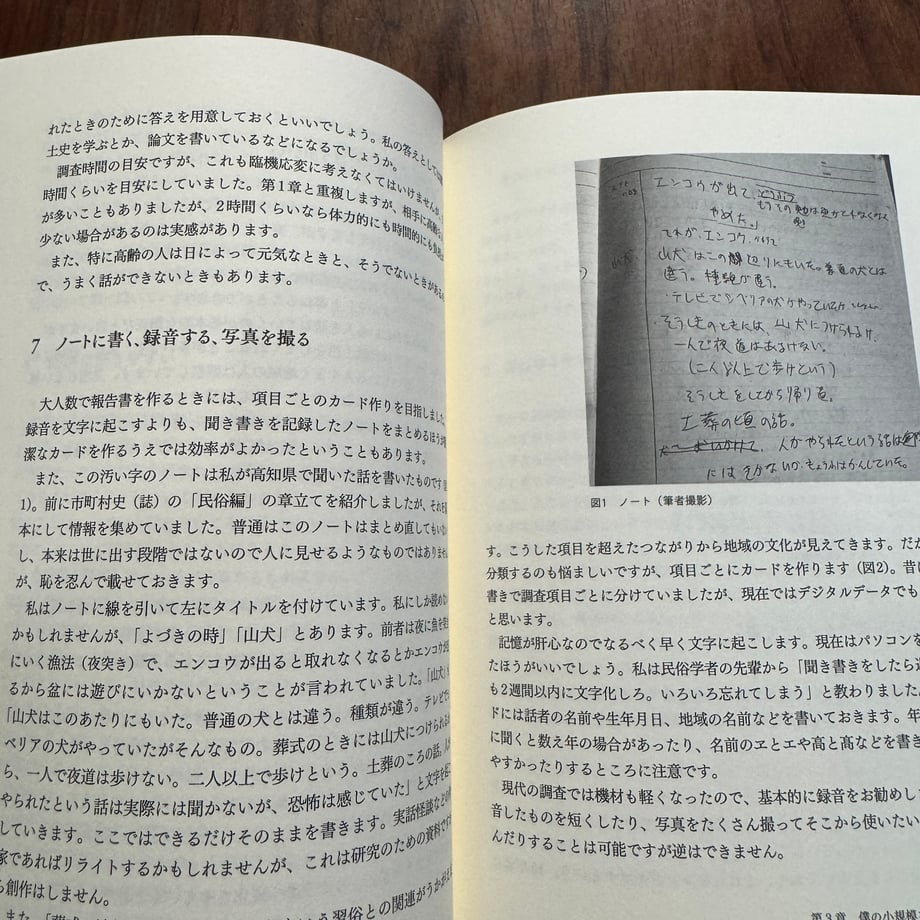 れたときのために答えを用意しておくといいでしょう。私の答えとしては
土史を学ぶとか、論文を書いているなどになるでしょうか。
調査時間の目安ですが、これも臨機応変に考えなくてはいけませんが、
時間くらいを目安にしていました。第1章と重複しますが、相手に高齢
が多いこともありましたが、2時間くらいなら体力的にも時間的にも負担
少ない場合があるのは実感があります。
また、特に高齢の人は日によって元気なときと、そうでないときがある
で、うまく話ができないときもあります。
7 ノートに書く、録音する、写真を撮る
大人数で報告書を作るときには、項目ごとのカード作りを目指しました。
録音を文字に起こすよりも、聞き書きを記録したノートをまとめるほうが
潔なカードを作るうえでは効率がよかったということもあります。
また、この汚い字のノートは私が高知県で聞いた話を書いたものです
1)。前に市町村史（誌）の「民俗編」の章立てを紹介しましたが、それを
本にして情報を集めていました。普通はこのノートはまとめ直してもいな
し、本来は世に出す段階ではないので人に見せるようなものではありませ
が、恥を忍んで載せておきます。
私はノートに線を引いて左にタイトルを付けています。私にしか読めな
かもしれませんが、「よづきの時」「山犬」とあります。前者は夜に魚を
にいく漁法（夜突き）で、エンコウが出ると取れなくなるとかエンコウが
るから盆には遊びにいかないということが言われていました。「山犬」
「山犬はこのあたりにもいた。普通の犬とは違う。種類が違う。テレビで
ベリアの犬がやっていたがそんなもの。葬式のときには山犬につけられる
ら、一人で夜道は歩けない。二人以上で歩けという。土葬のころの話。人
やられたという話は実際には聞かないが、恐怖は感じていた」と文字を
していきます。ここではできるだけそのままを書きます。実話怪談などの
家であればリライトするかもしれませんが、これは研究のための資料です
ら創作はしません。
また、「葬式
という習俗との関連がうかがえ
エンコウが出て
やめた。」
それが、エンコウ
山犬
山犬はこの辺りにもいた。普通の犬とは
違う。種類が違う。
・テレビでシベリアの犬がやっていたが
・そうしきのときには、山犬につけられるけ
一人で夜道はあるけない。
(二人以上で歩けという)
そうしきをしてから帰り道。
土葬の頃の話。
人がやられたという話は
図1 ノート（筆者撮影）
す。こうした項目を超えたつながりから地域の文化が見えてきます。だか
分類するのも悩ましいですが、項目ごとにカードを作ります（図2）。昔は
書きで調査項目ごとに分けていましたが、現在ではデジタルデータでも
と思います。
記憶が肝心なのでなるべく早く文字に起こします。現在はパソコンを
たほうがいいでしょう。私は民俗学者の先輩から「聞き書きをしたら
も2週間以内に文字化しろ。いろいろ忘れてしまう」と教わりました。
ドには話者の名前や生年月日、地域の名前などを書いておきます。年
に聞くと数え年の場合があったり、名前のヱとエや高と髙などを書き
やすかったりするところに注意です。
現代の調査では機材も軽くなったので、基本的に録音をお勧めし
音したものを短くしたり、写真をたくさん撮ってそこから使いたい
んだりすることは可能ですが逆はできません。
第3章 僕の小規模